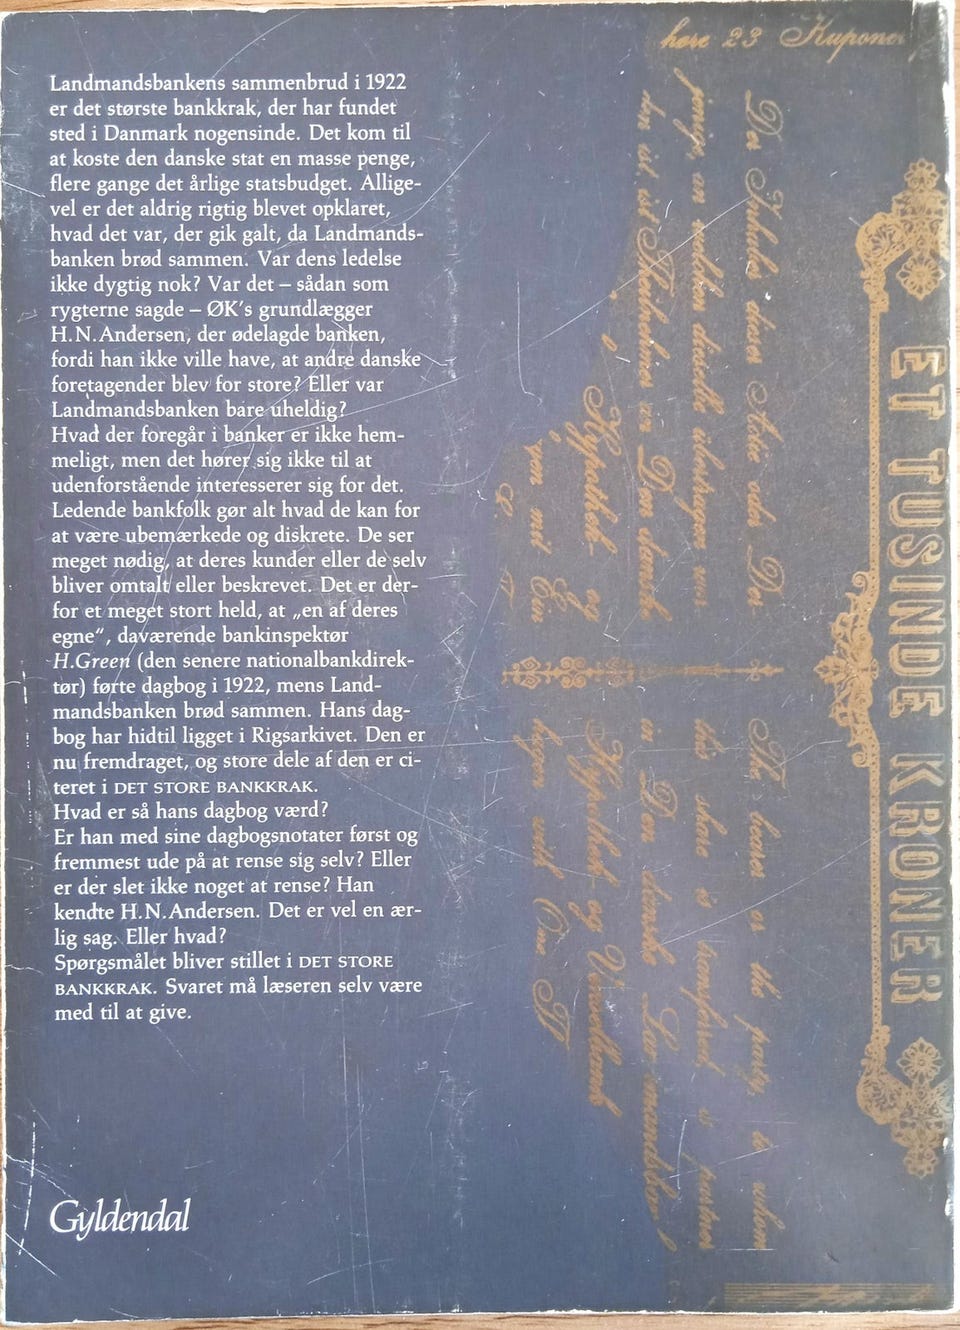 Landmandsbankens sammenbrud i 1922
er det største bankkrak, der har fundet
sted i Danmark nogensinde. Det kom til
at koste den danske stat en masse penge,
flere gange det årlige statsbudget. Allige-
vel er det aldrig rigtig blevet opklaret,
hvad det var, der gik galt, da Landmands-
banken brød sammen. Var dens ledelse
ikke dygtig nok? Var det – sådan som
rygterne sagde – ØK's grundlægger
H.N.Andersen, der ødelagde banken,
fordi han ikke ville have, at andre danske
foretagender blev for store? Eller var
Landmandsbanken bare uheldig?
Hvad der foregår i banker er ikke hem-
meligt, men det hører sig ikke til at
udenforstående interesserer sig for det.
Ledende bankfolk gør alt hvad de kan for
at være ubemærkede og diskrete. De ser
meget nødig, at deres kunder eller de selv
bliver omtalt eller beskrevet. Det er der-
for et meget stort held, at „en af deres
egne", daværende bankinspektør
H.Green (den senere nationalbankdirek-
tør) førte dagbog i 1922, mens Land-
mandsbanken brød sammen. Hans dag-
bog har hidtil ligget i Rigsarkivet. Den er
nu fremdraget, og store dele af den er ci-
teret i DET STORE BANKKRAK.
Hvad er så hans dagbog værd?
Er han med sine dagbogsnotater først og
fremmest ude på at rense sig selv? Eller
er der slet ikke noget at rense? Han
kendte H.N.Andersen. Det er vel en ær-
lig sag. Eller hvad?
Spørgsmålet bliver stillet i DET STORE
BANKKRAK. Svaret må læseren selv være
med til at give.
Gyldendal
høre 23 Kuponer
ET TUSINDE KRONER
Der Inhaber dieser Actie oder Der
jenige, an welchen dieselbe übertragen wor
den ist, ist Theilhaber an Den danske
Hypothek- og
gen mit Ein
The bearer or the party, to whom
this share is transferred, is partner
in Den danske Landmandsban
Hypothek- og Vexelbank
hagen with One T